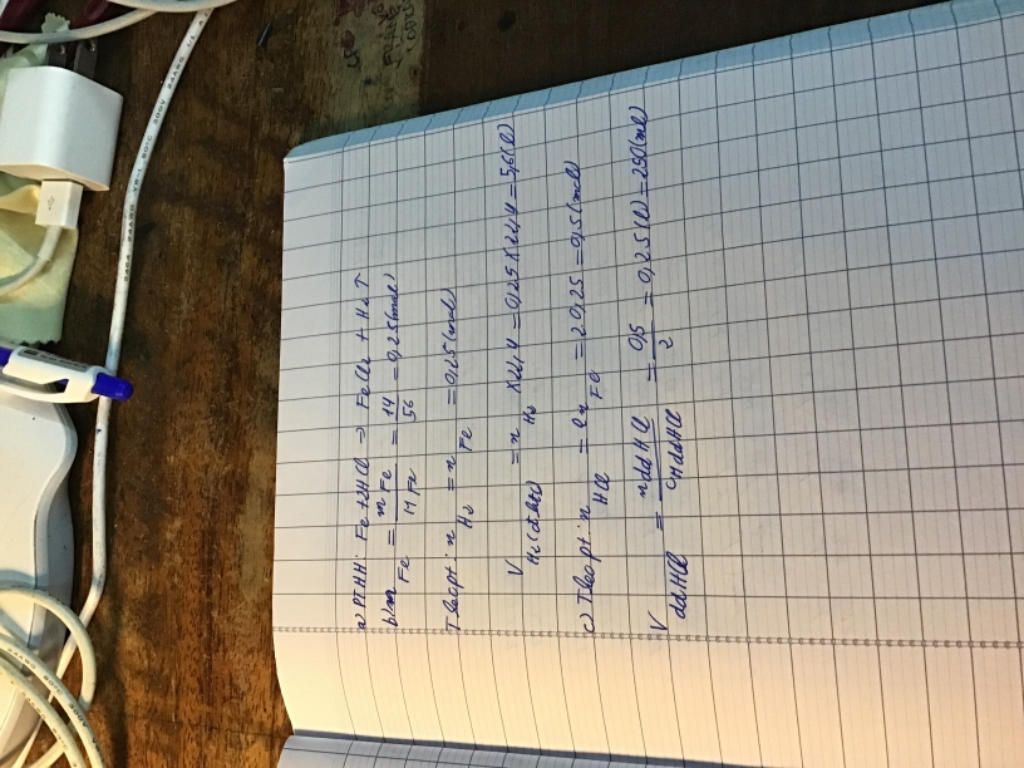 a) PTHH: Fe + 2HCl → FeCl2 + H2↑
b) nFe = mFe/MFe = 14/56 = 0,25(mol)
Theo pt: nH2 = nFe = 0,25(mol)
VH2(đktc) = nH2 x22,4 = 0,25x22,4 = 5,6(l)
c) Theo pt: nHCl = 2nFe = 2.0,25 = 0,5(mol)
VddHCl = nddHCl/CMddHCl = 0,5/2 = 0,25(l) = 250(ml)